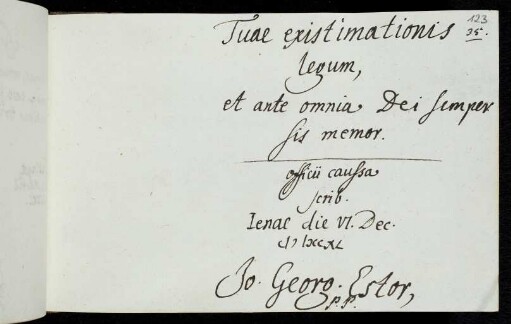 123
25.
Tuae existimationis
legum,
et ante omnia Dei semper
sis memor.
officii caussa
scrib.
Ienae die VI. Dec.
Jo. Georg. Estor,
p.p.